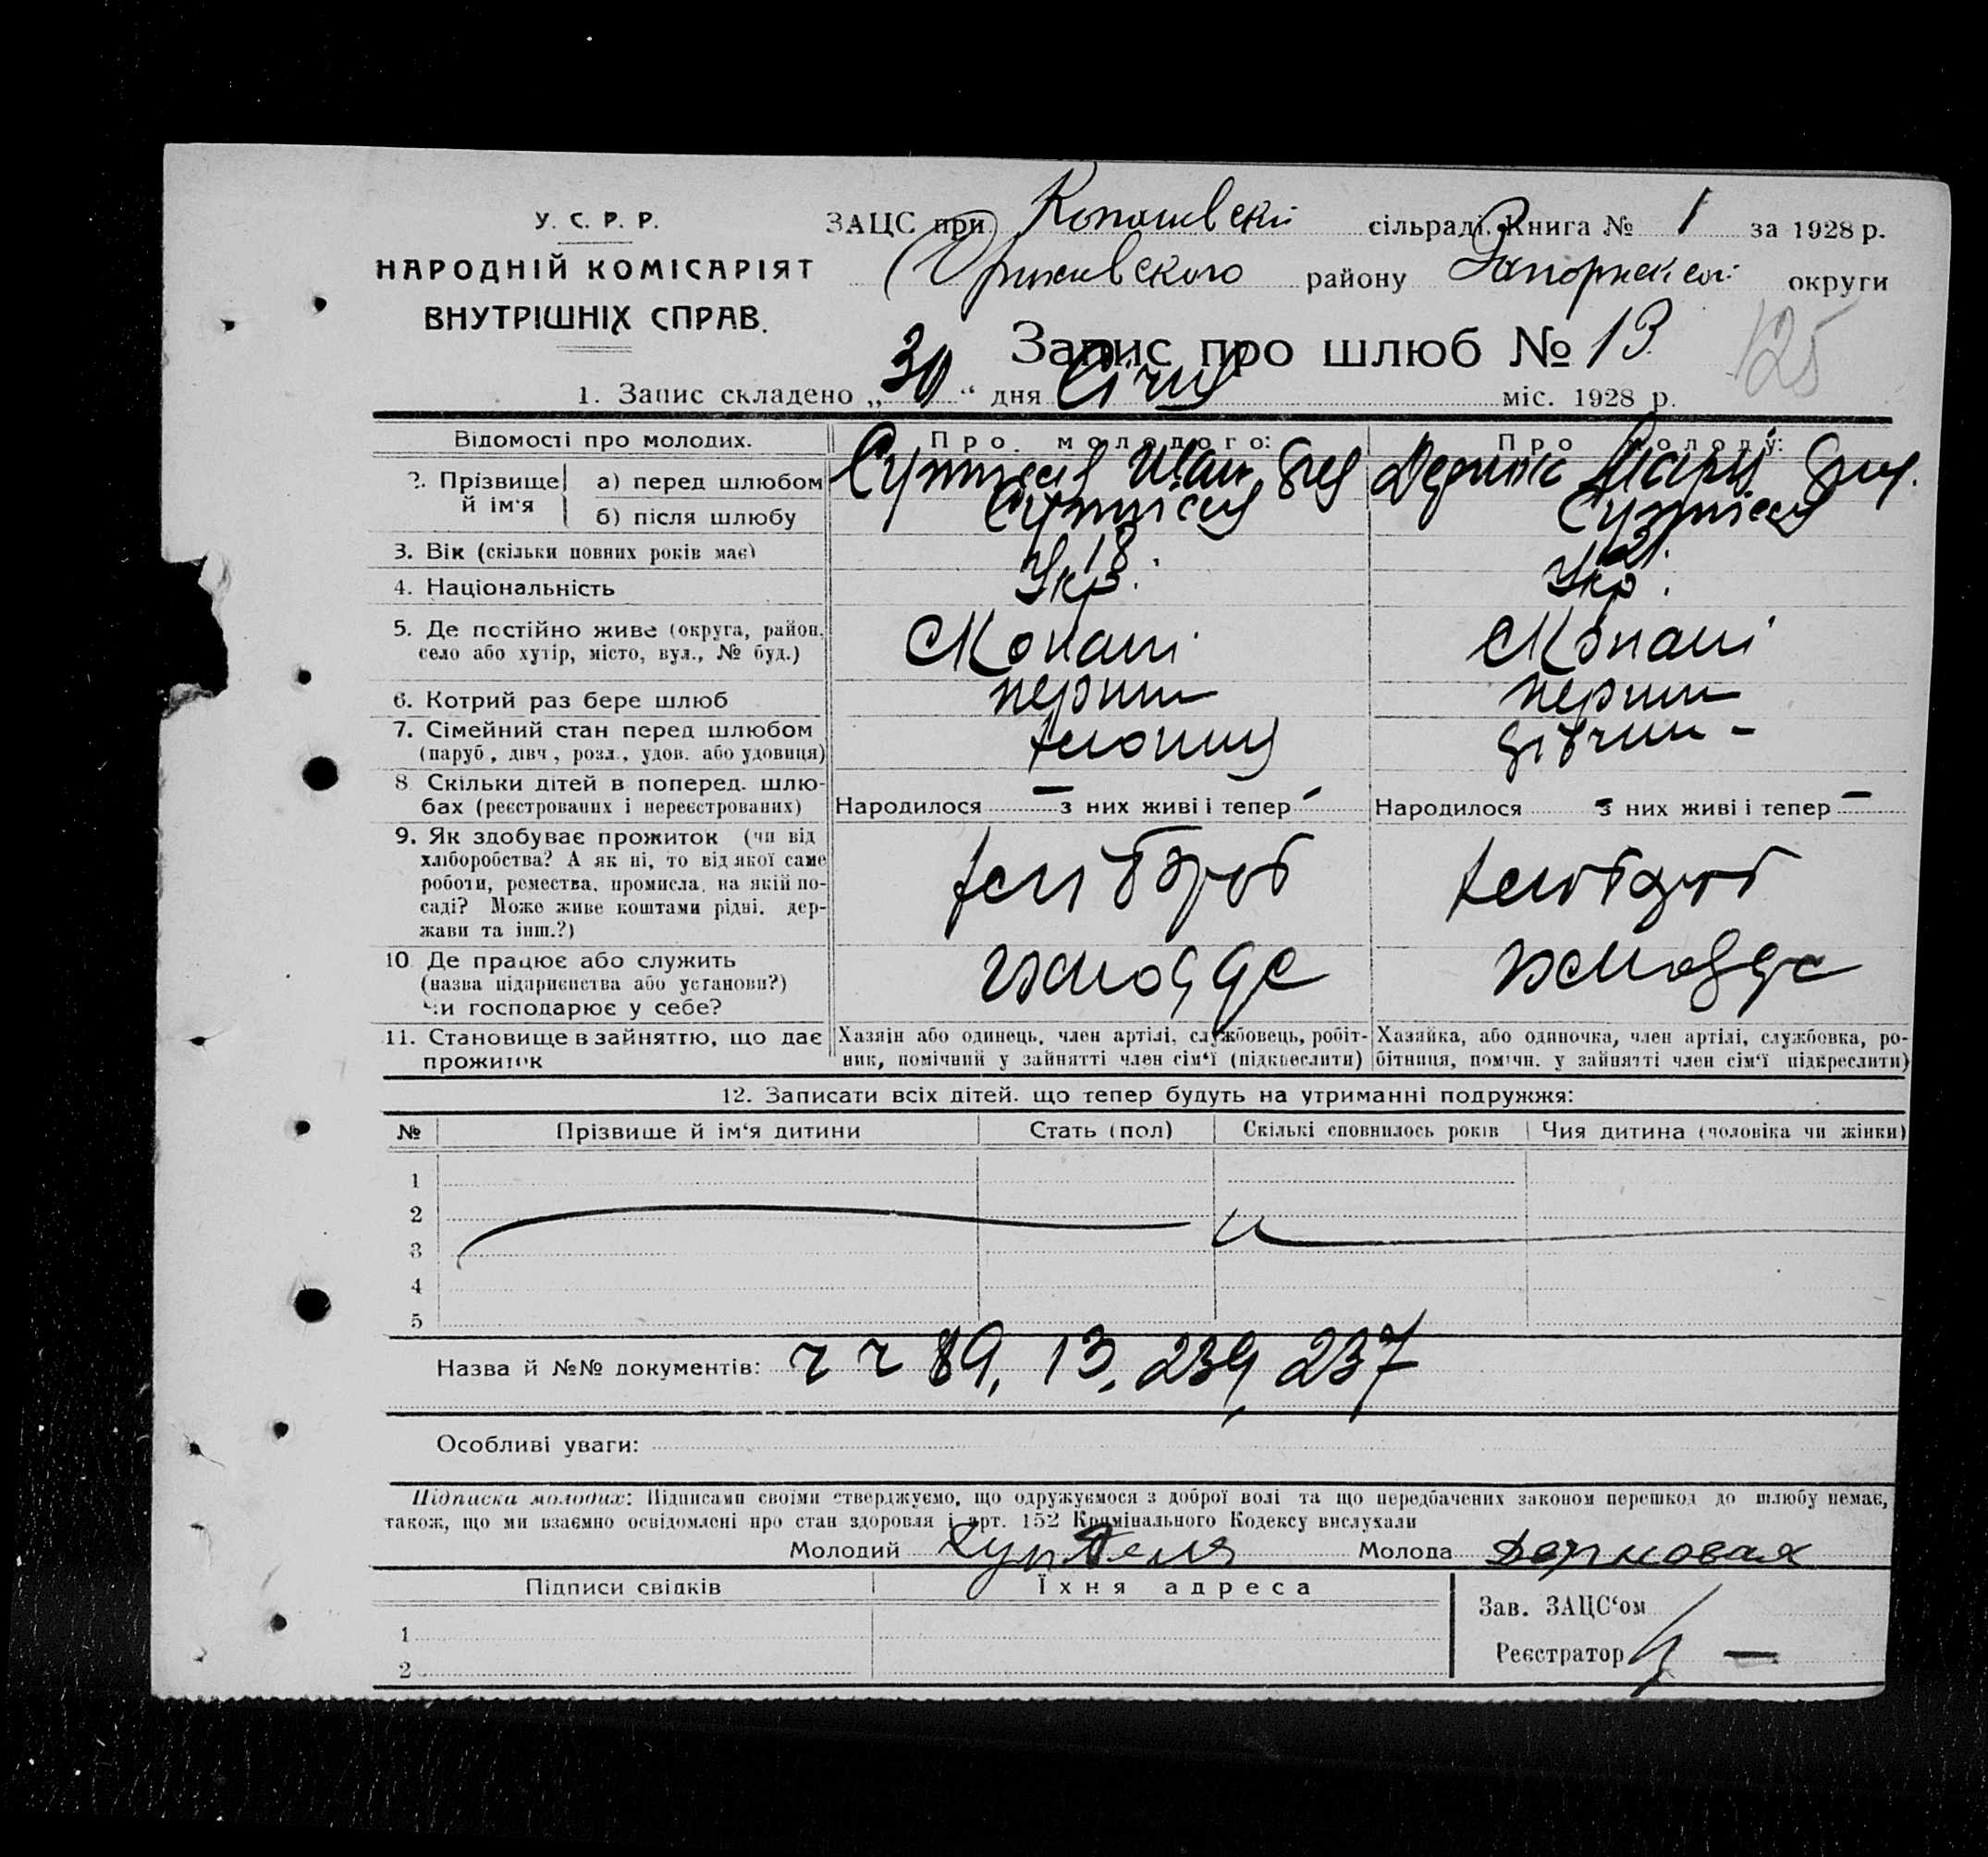 У. С. Р. Р.
НАРОДНІЙ КОМІСАРІЯТ
ВНУТРІШНІХ СПРАВ.
ЗАЦС при сільраді. Книга № 1 за 1928 р.
району округи
Запис про шлюб № 13
125
1. Запис складено „30“ дня Січня міс. 1928 р.
Відомості про молодих. Про молодого: Про молоду:
2. Прізвище й ім'я а) перед шлюбом Іван
б) після шлюбу
3. Вік (скільки повних років має) 18 21
4. Національність Укр. Укр.
5. Де постійно живе (округа, район, село або хутір, місто, вул., № буд.) С Копані С Копані
6. Котрий раз бере шлюб перший перший
7. Сімейний стан перед шлюбом (паруб, дівч, розл., удов. або удовиця) дівчин -
8 Скільки дітей в поперед. шлюбах (реєстрованих і нереєстрованих) Народилося — з них живі і тепер - Народилося - з них живі і тепер —
9. Як здобуває прожиток (чи від
хліборобства? А як ні, то від якої саме
роботи, ремества, промисла, на якій посаді? Може живе коштами рідні, держави та інш.?) хлібороб хлібороб
10 Де працює або служить
(назва підприємства або установи?)
Чи господарює у себе?
11. Становище в зайняттю, що дає прожиток Хазяін або одинець, член артілі, службовець, робітник, помічний у зайнятті член сім'ї (підкреслити) Хазяйка, або одиночка, член артілі, службовка, робітниця, помічн. у зайнятті член сім'ї підкреслити)
12. Записати всіх дітей, що тепер будуть на утриманні подружжя:
№ Прізвише й ім'я дитини Стать (пол) Скількі сповнилось років Чия дитина (чоловіка чи жінки)
1
2
3
4
5
Назва й №№ документів: ч ч 89, 13, 239, 237
Особливі уваги:
Підписка молодих: Підписами своїми стверджуємо, що одружуємося з доброї волі та що передбачених законом перешкод до шлюбу немає,
також, що ми взаємно освідомлені про стан здоровля і арт. 152 Кримінального Кодексу вислухали
Молодий Молода
Підписи свідків Їхня адреса
Зав. ЗАЦС'ом
1
Реєстратор
2